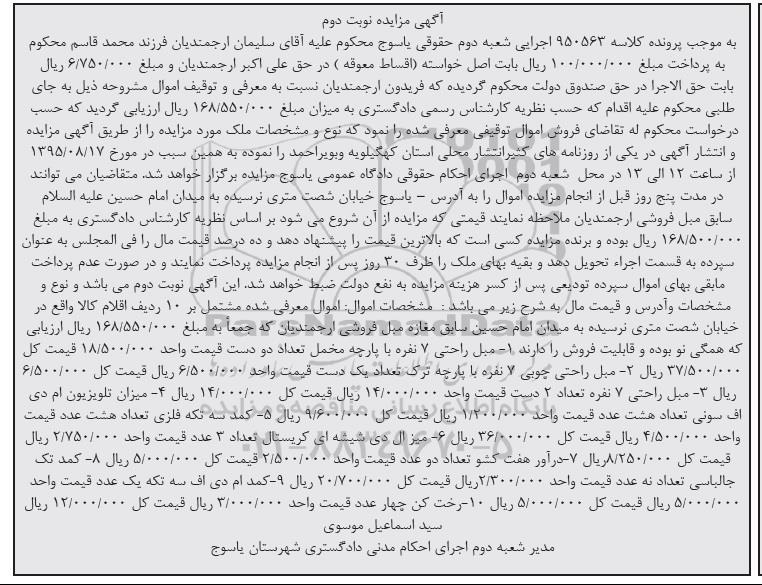 آگهی مزایده نوبت دوم
به موجب پرونده کلاسه ۹۵۰۵۶۳ اجرایی شعبه دوم حقوقی یاسوج محکوم علیه آقای سلیمان ارجمندیان فرزند محمد قاسم محکوم
به پرداخت مبلغ ۱۰۰/۰۰۰/۰۰۰ ریال بابت اصل خواسته (اقساط معوقه ) در حق علی اکبر ارجمندیان و مبلغ ۶/۷۵۰/۰۰۰ ریال
بابت حق الاجرا در حق صندوق دولت محکوم گردیده که فریدون ارجمندیان نسبت به معرفی و توقیف اموال مشروحه ذیل به جای
طلبی محکوم علیه اقدام که حسب نظریه کارشناس رسمی دادگستری به میزان مبلغ ۱۶۸/۵۵۰/۰۰۰ ریال ارزیابی گردید که حسب
درخواست محکوم له تقاضای فروش اموال توقیفی معرفی شده را نمود که نوع و مشخصات ملک مورد مزایده را از طریق آگهی مزایده
و انتشار آگهی در یکی از روزنامه های کثیرانتشار محلی استان کهگیلویه وبویراحمد را نموده به همین سبب در مورخ ۱۳۹۵/۰۸/۱۷
از ساعت ۱۲ الی ۱۳ در محل شعبه دوم اجرای احکام حقوقی دادگاه عمومی یاسوج مزایده برگزار خواهد شد. متقاضیان می توانند
در مدت پنج روز قبل از انجام مزایده اموال را به آدرس – یاسوج خیابان شصت متری نرسیده به میدان امام حسین علیه السلام
سابق مبل فروشی ارجمندیان ملاحظه نمایند قیمتی که مزایده از آن شروع می شود بر اساس نظریه کارشناس دادگستری به مبلغ
۱۶۸/۵۰۰/۰۰۰ ریال بوده و برنده مزایده کسی است که بالاترین قیمت را پیشنهاد دهد و ده درصد قیمت مال را فی المجلس به عنوان
سپرده به قسمت اجراء تحویل دهد و بقیه بهای ملک را ظرف ۳۰ روز پس از انجام مزایده پرداخت نمایند و در صورت عدم پرداخت
مابقی بهای اموال سپرده تودیعی پس از کسر هزینه مزایده به نفع دولت ضبط خواهد شد. این آگهی نوبت دوم می باشد و نوع و
مشخصات وآدرس و قیمت مال به شرح زیر می باشد : مشخصات اموال: اموال معرفی شده مشتمل بر ۱۰ ردیف اقلام کالا واقع در
خیابان شصت متری نرسیده به میدان امام حسین سابق مغازه مبل فروشی ارجمندیان که جمعاً به مبلغ ۱۶۸/۵۵۰/۰۰۰ ریال ارزیابی
که همگی نو بوده و قابلیت فروش را دارند ۱- مبل راحتی ۷ نفره با پارچه مخمل تعداد دو دست قیمت واحد ۱۸/۵۰۰/۰۰۰ قیمت کل
۳۷/۵۰۰/۰۰۰ ریال ۲- مبل راحتی چوبی ۷ نفره با پارچه ترک تعداد یک دست قیمت واحد ۶/۵۰۰/۰۰۰ ریال قیمت کل ۶/۵۰۰/۰۰۰
ریال ۳- مبل راحتی ۷ نفره تعداد ۲ دست قیمت واحد ۱۴/۰۰۰/۰۰۰ ریال قیمت کل ۱۴/۰۰۰/۰۰۰ ریال ۴- میزان تلویزیون ام دی
اف سونی تعداد هشت عدد قیمت واحد ۱/۲۰۰/۰۰۰ ریال قیمت کل ۹/۶۰۰/۰۰۰ ریال ۵- کمد سه تکه فلزی تعداد هشت عدد قیمت
واحد ۴/۵۰۰/۰۰۰ ریال قیمت کل ۳۶/۰۰۰/۰۰۰ ریال ۶- میز ال دی شیشه ای کریستال تعداد ۳ عدد قیمت واحد ۲/۷۵۰/۰۰۰ ریال
قیمت کل ۸/۲۵۰/۰۰۰ریال ۷-درآور هفت کشو تعداد دو عدد قیمت واحد ۲/۵۰۰/۰۰۰ قیمت کل ۵/۰۰۰/۰۰۰ ریال ۸- کمد تک
جالباسی تعداد نه عدد قیمت واحد ۲/۳۰۰/۰۰۰ریال قیمت کل ۲۰/۷۰۰/۰۰۰ ریال ۹-کمد ام دی اف سه تکه یک عدد قیمت واحد
۵/۰۰۰/۰۰۰ ریال قیمت کل ۵/۰۰۰/۰۰۰ ریال ۱۰-رخت کن چهار عدد قیمت واحد ۳/۰۰۰/۰۰۰ ریال قیمت کل ۱۲/۰۰۰/۰۰۰ ریال
سید اسماعیل موسوی
مدیر شعبه دوم اجرای احکام مدنی دادگستری شهرستان یاسوج